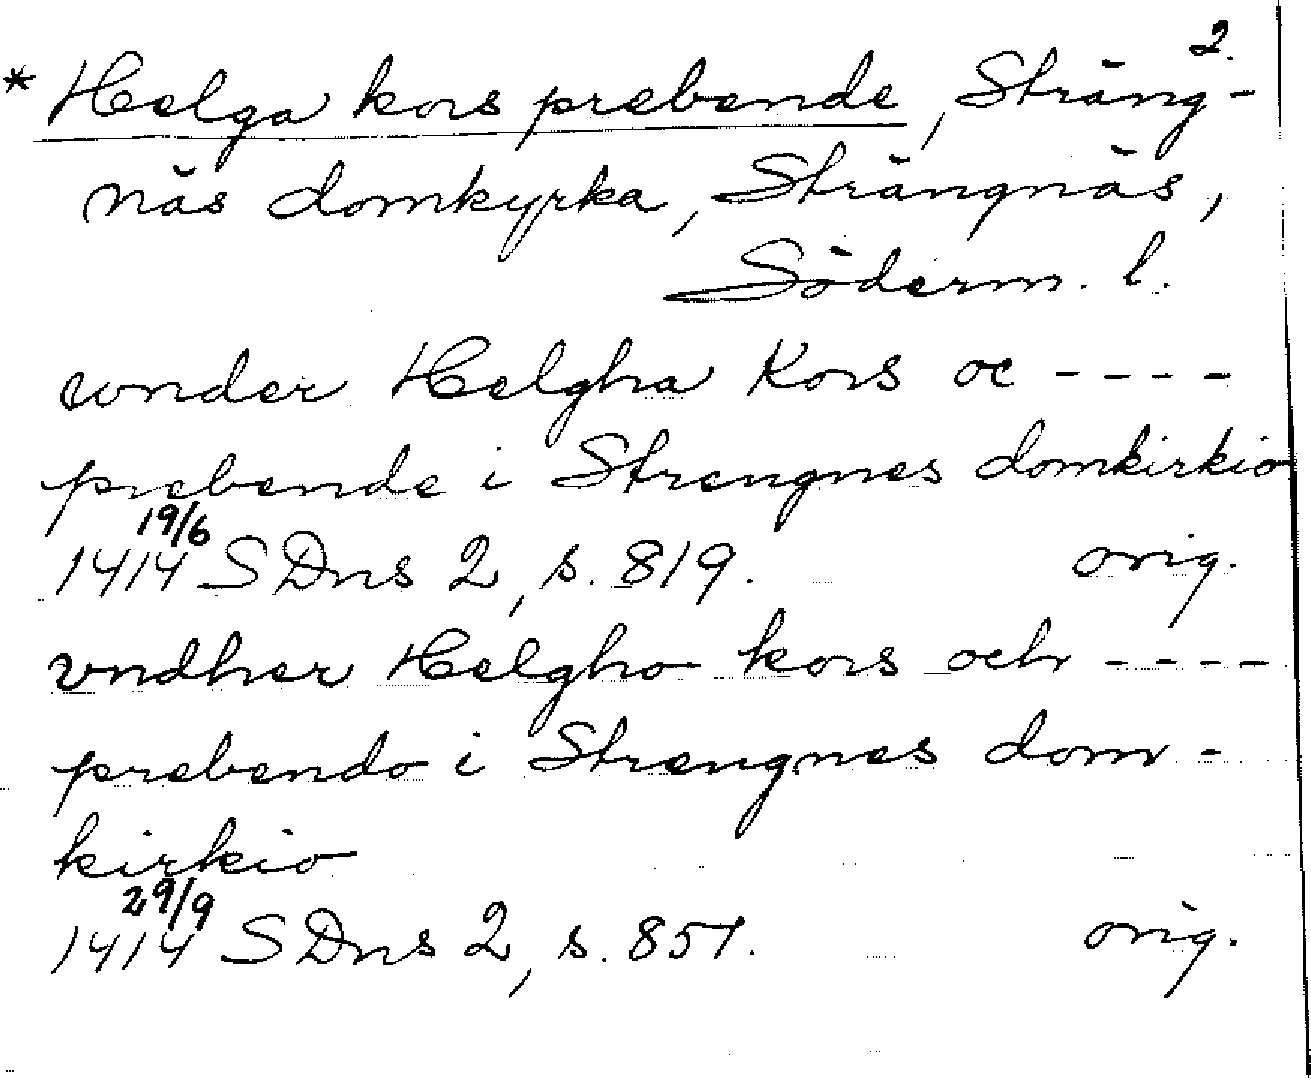 2.
* Helga kors prebende, Sträng-
näs domkyrka, Strängnäs,
Söderm. l.
wnder Helgha Kors oc ----
prebende i Strengnes domkirkio
19/6
1414 SDns 2, s. 819. orig.
vndher Helgho kors och ----
prebendo i Strengnes dom-
kirkio
29/9
1414 SDns 2, s. 851. orig.